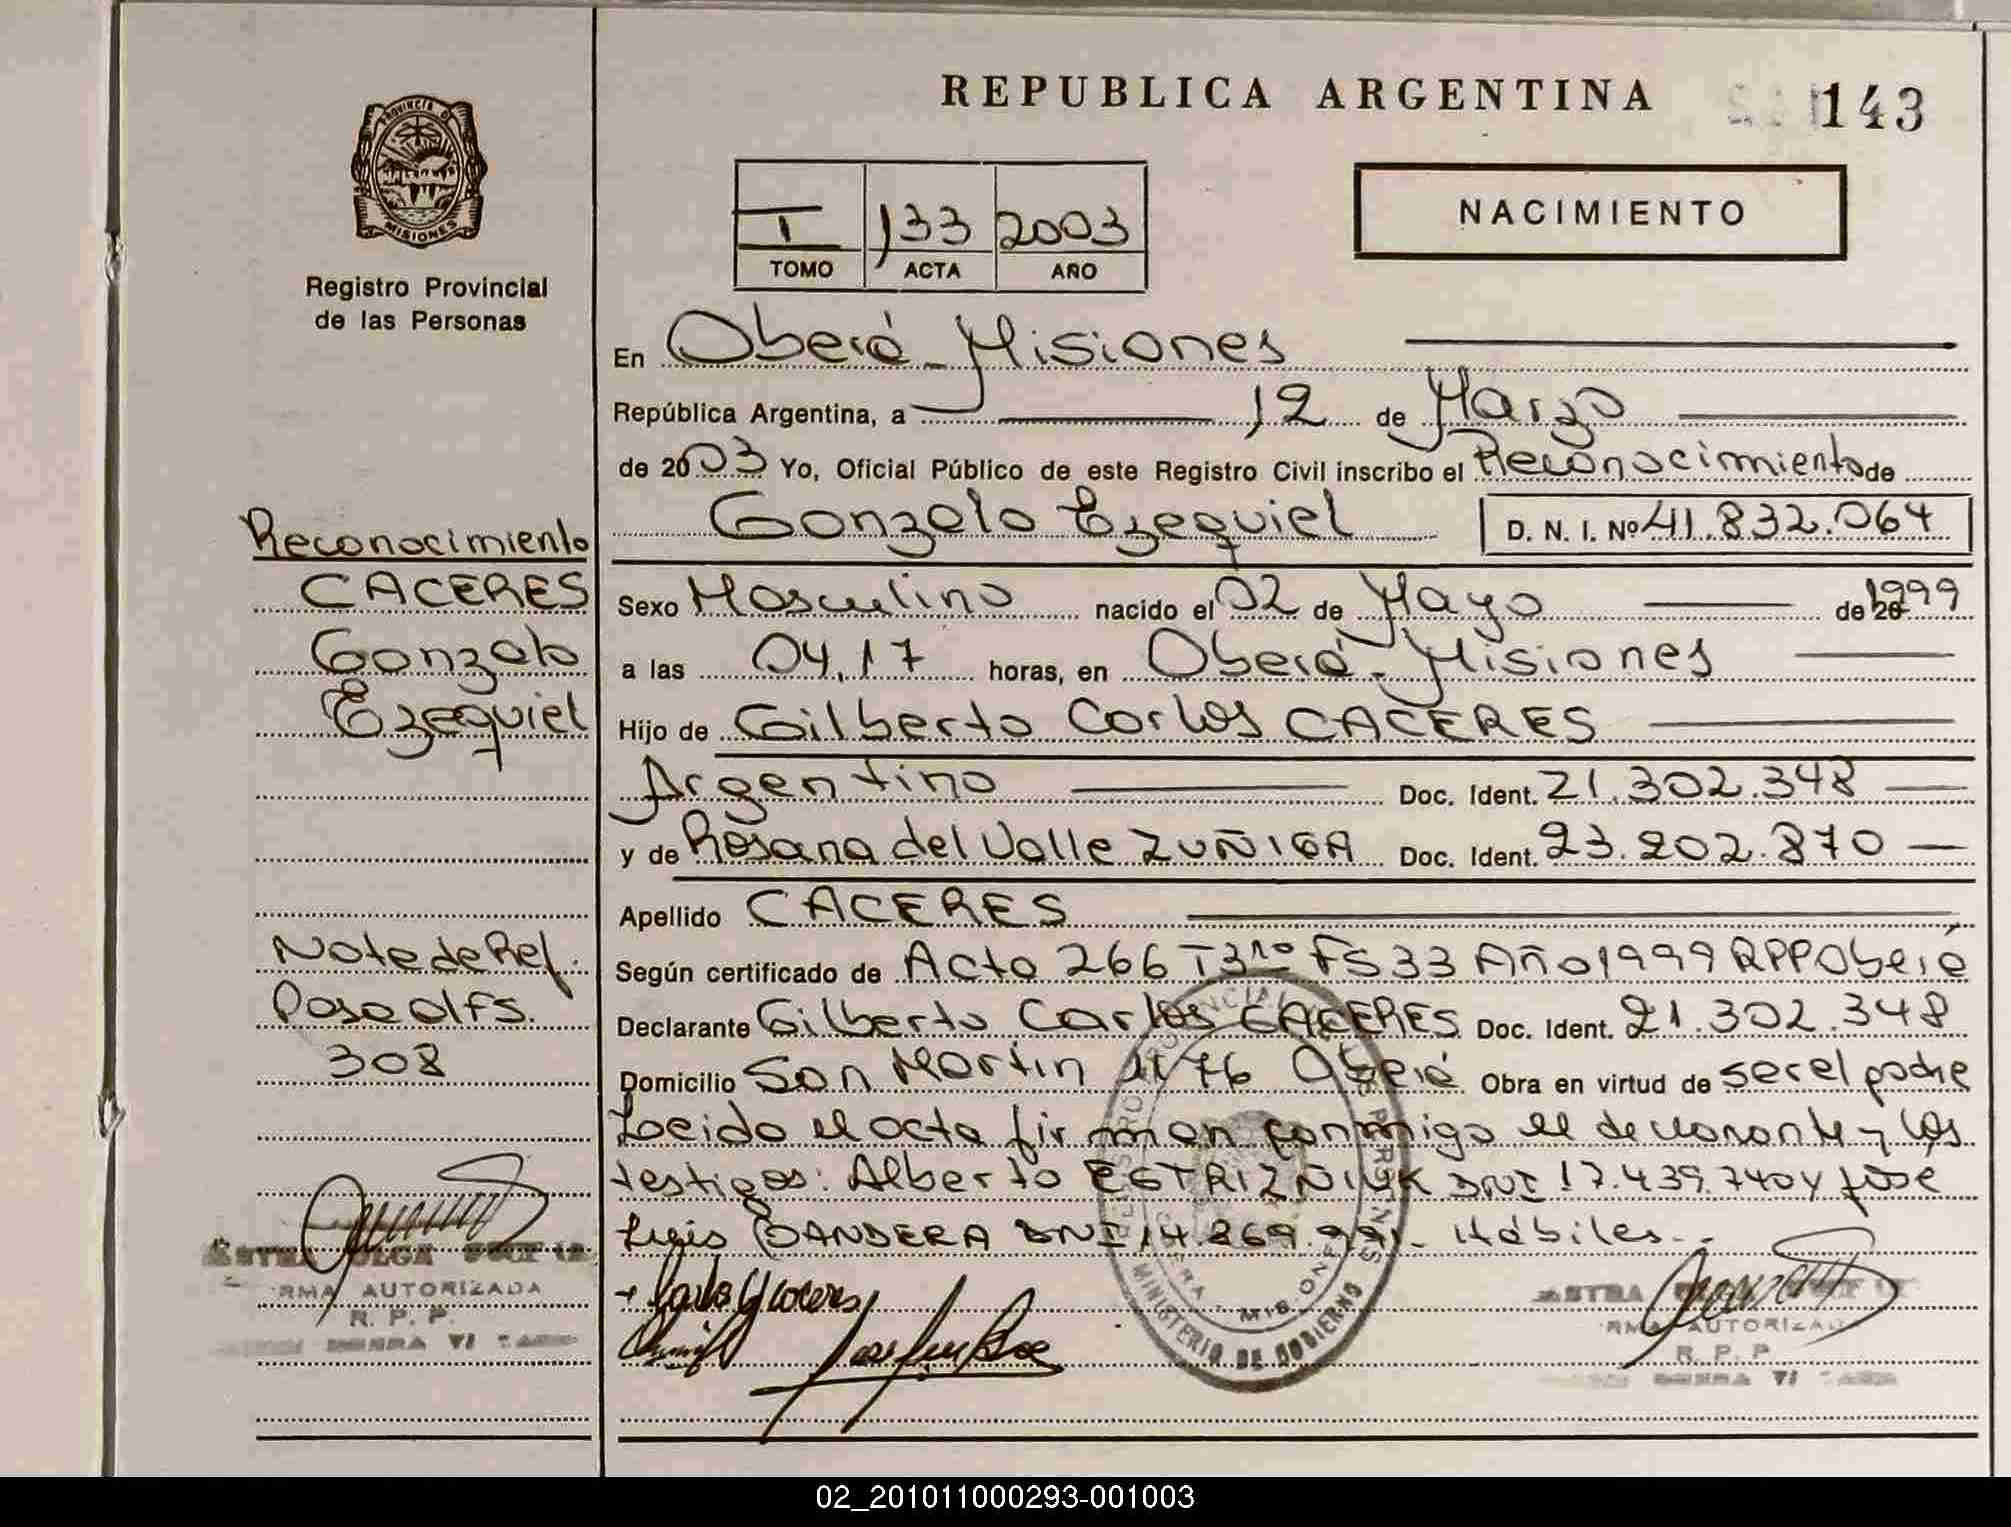 REPUBLICA ARGENTINA
143
PROVINCIA D
MISIONES
Registro Provincial
de las Personas
I 133 2003
TOMO ACTA AÑO
NACIMIENTO
En Oberá - Misiones
República Argentina, a 12 de Marzo
de 2003 Yo, Oficial Público de este Registro Civil inscribo el Reconocimiento de
Gonzalo Ezequiel D. N. I. Nº 41.832.064
Sexo Masculino nacido el 02 de Mayo de 1999
a las 04,17 horas, en Oberá - Misiones
Hijo de Gilberto Carlos CACERES
Argentino Doc. Ident. 21.302.348
y de Rosana del Valle ZUÑIGA Doc. Ident. 23.202.870
Apellido CACERES
Según certificado de Acta 266 T3ro FS33 Año 1999 RPP Oberá
Declarante Gilberto Carlos CACERES Doc. Ident. 21.302.348
Domicilio San Martin Oberá Obra en virtud de ser el padre
Leida el acta firman conmigo el declarante y los
testigos: Alberto ESTRIZNIUK DNI 17.439.740 y José
Luis BANDERA DNI 14.869.991.- Hábiles.-
Reconocimiento
CACERES
Gonzalo
Ezequiel
Nota de Ref.
Pasa al fs.
308
OLGA
RMA AUTORIZADA
R. P. P.
MINISTERIO DE GOBIERNO
RMA AUTORIZADA
R. P. P
02_201011000293-001003